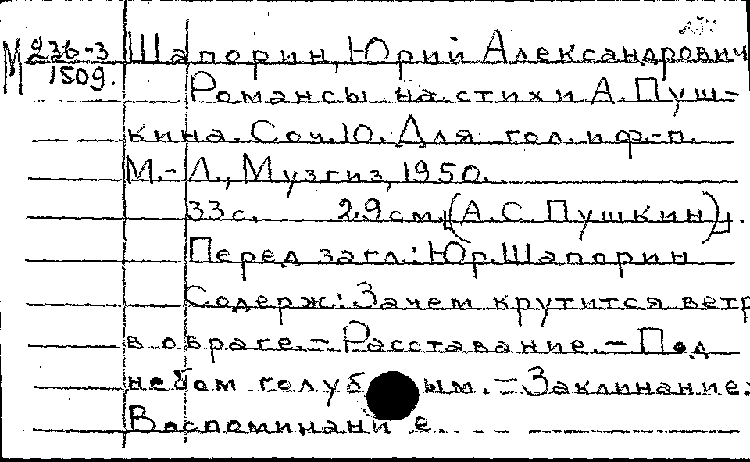 М 236-3 Шапорин, Юрий Александрович
1509.
Романсы на стихи А. Пуш-
кина. Соч. 10. Для гол. и ф.-п.
М.-Л., Музгиз, 1950.
33 с. 29 см. (А.С. Пушкин).
Перед загл.: Юр. Шапорин
Содерж: Зачем крутится ветр
в овраге. - Расставание. - Под
небом голубым. - Заклинание.
Воспоминание.